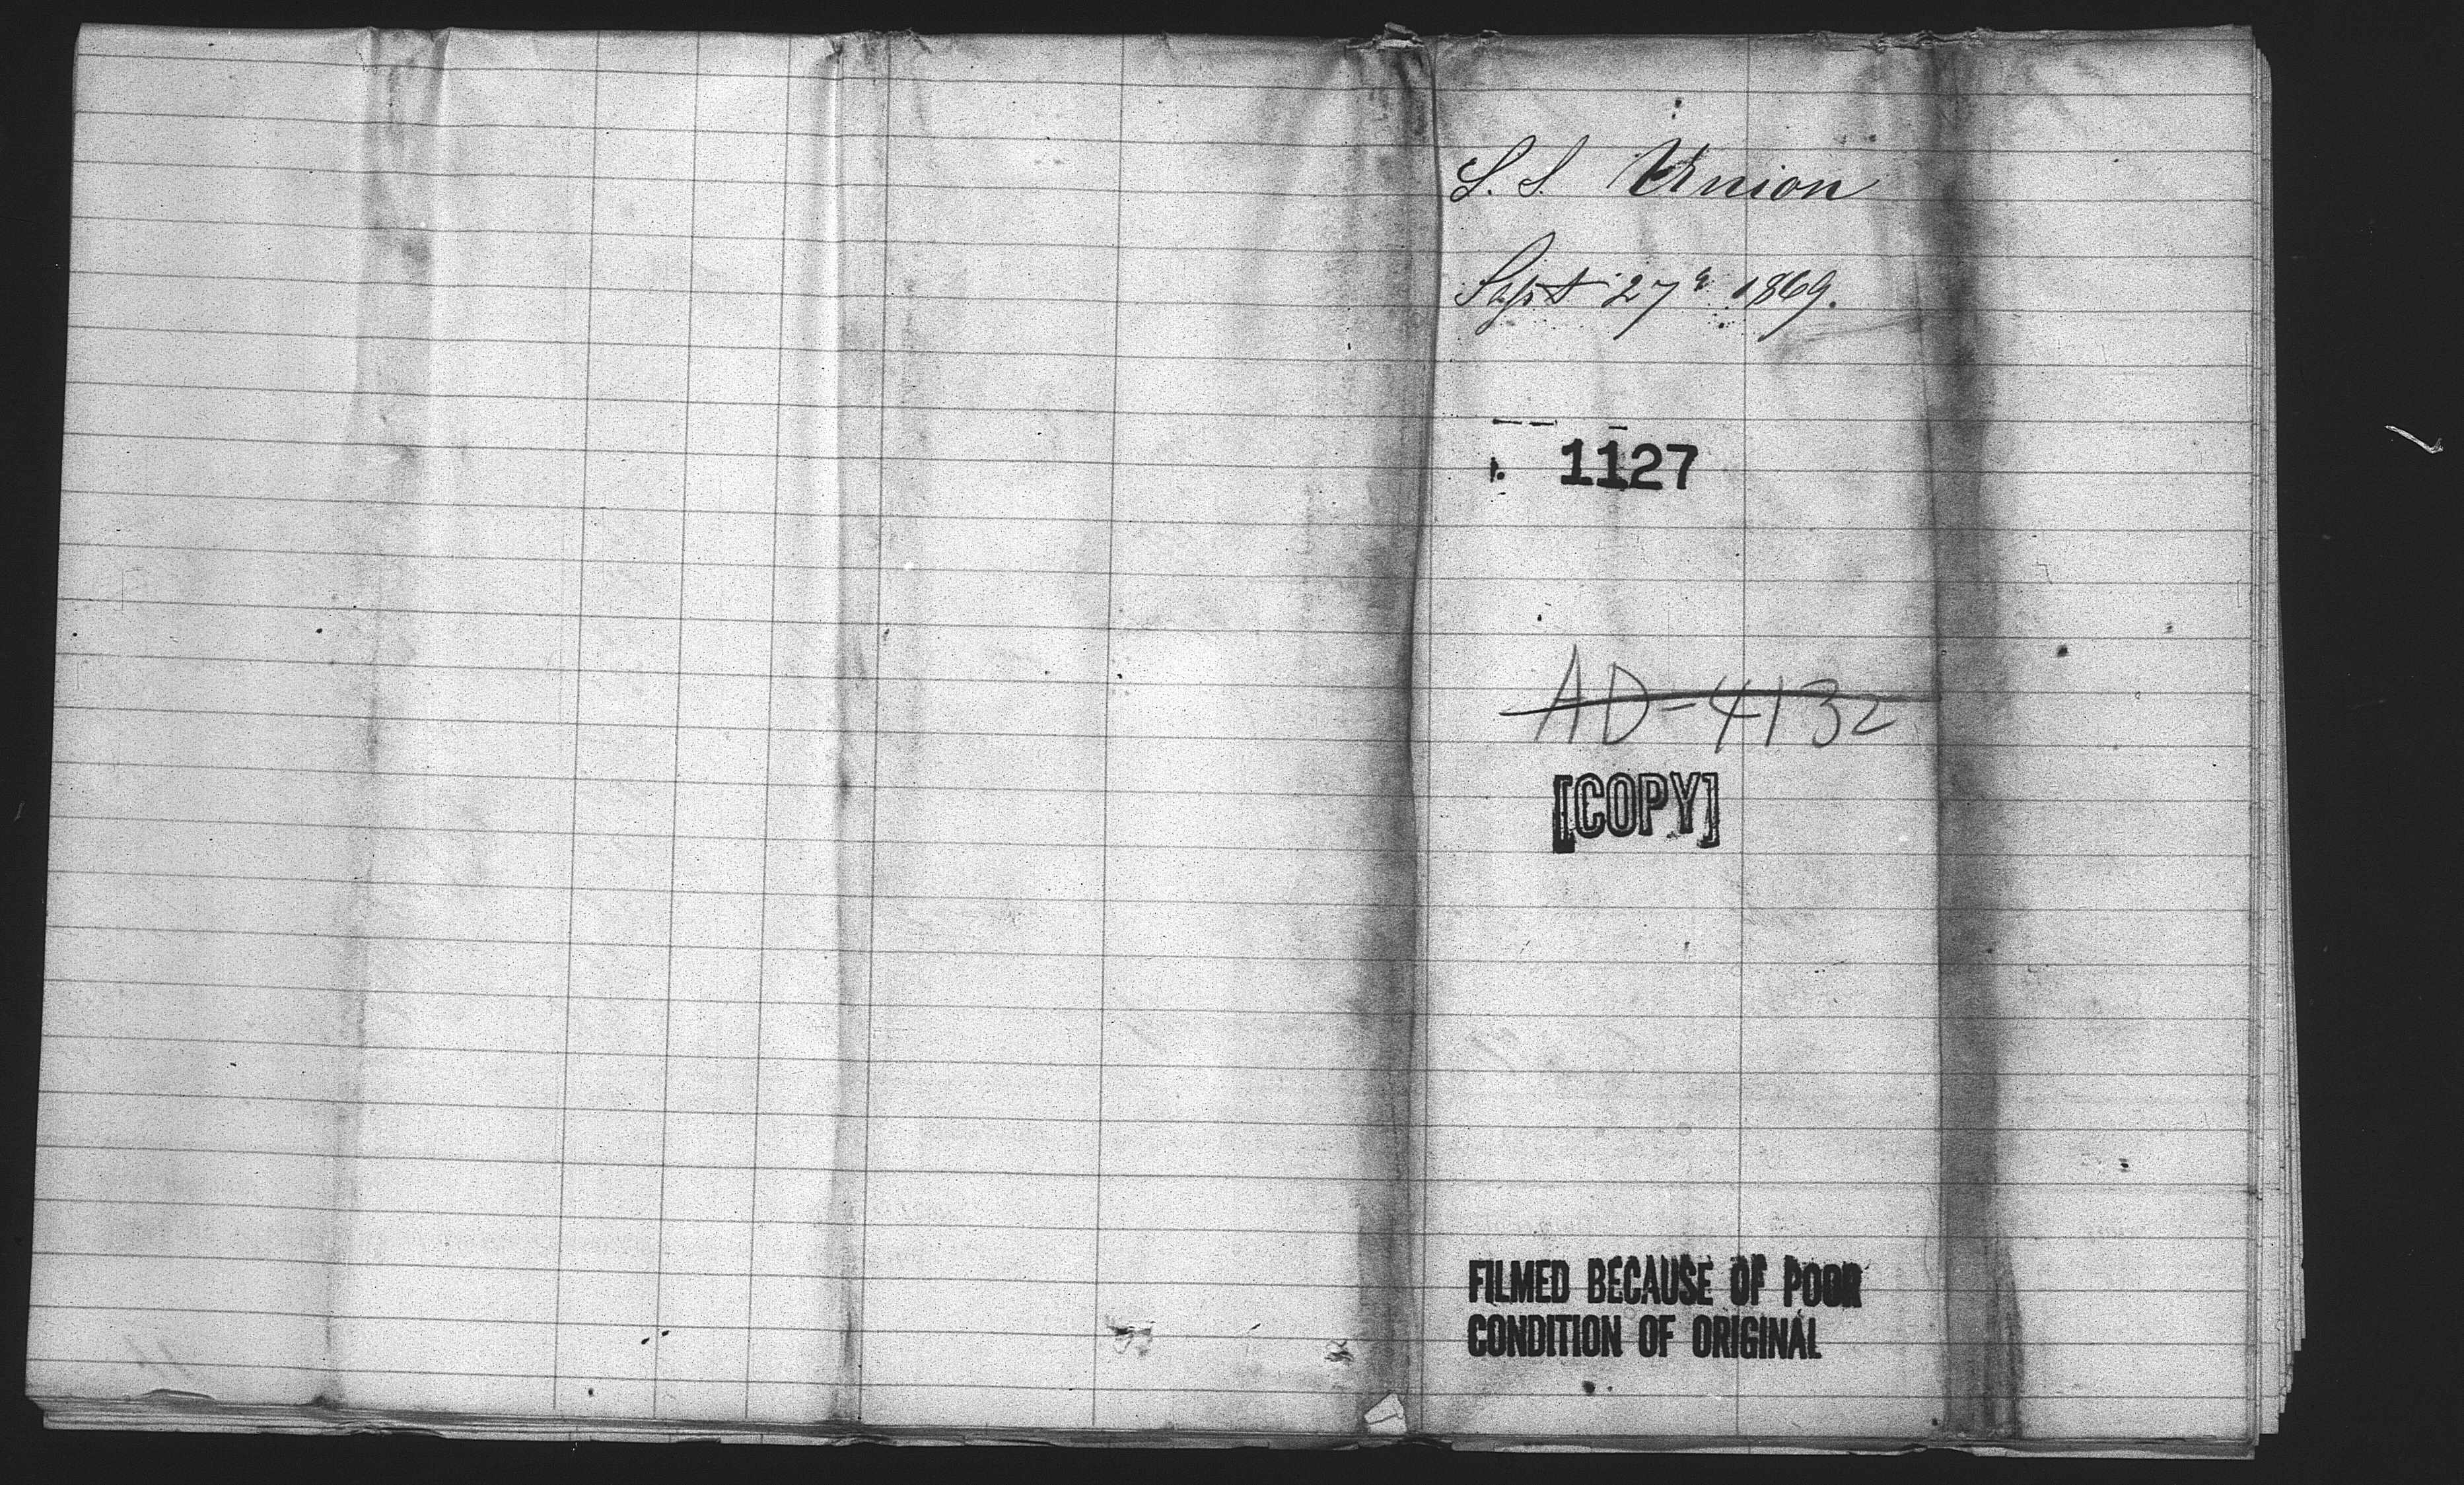 S. S. Union
Sept 27th 1869.
1127
AD-4132
[COPY]
FILMED BECAUSE OF POOR
CONDITION OF ORIGINAL